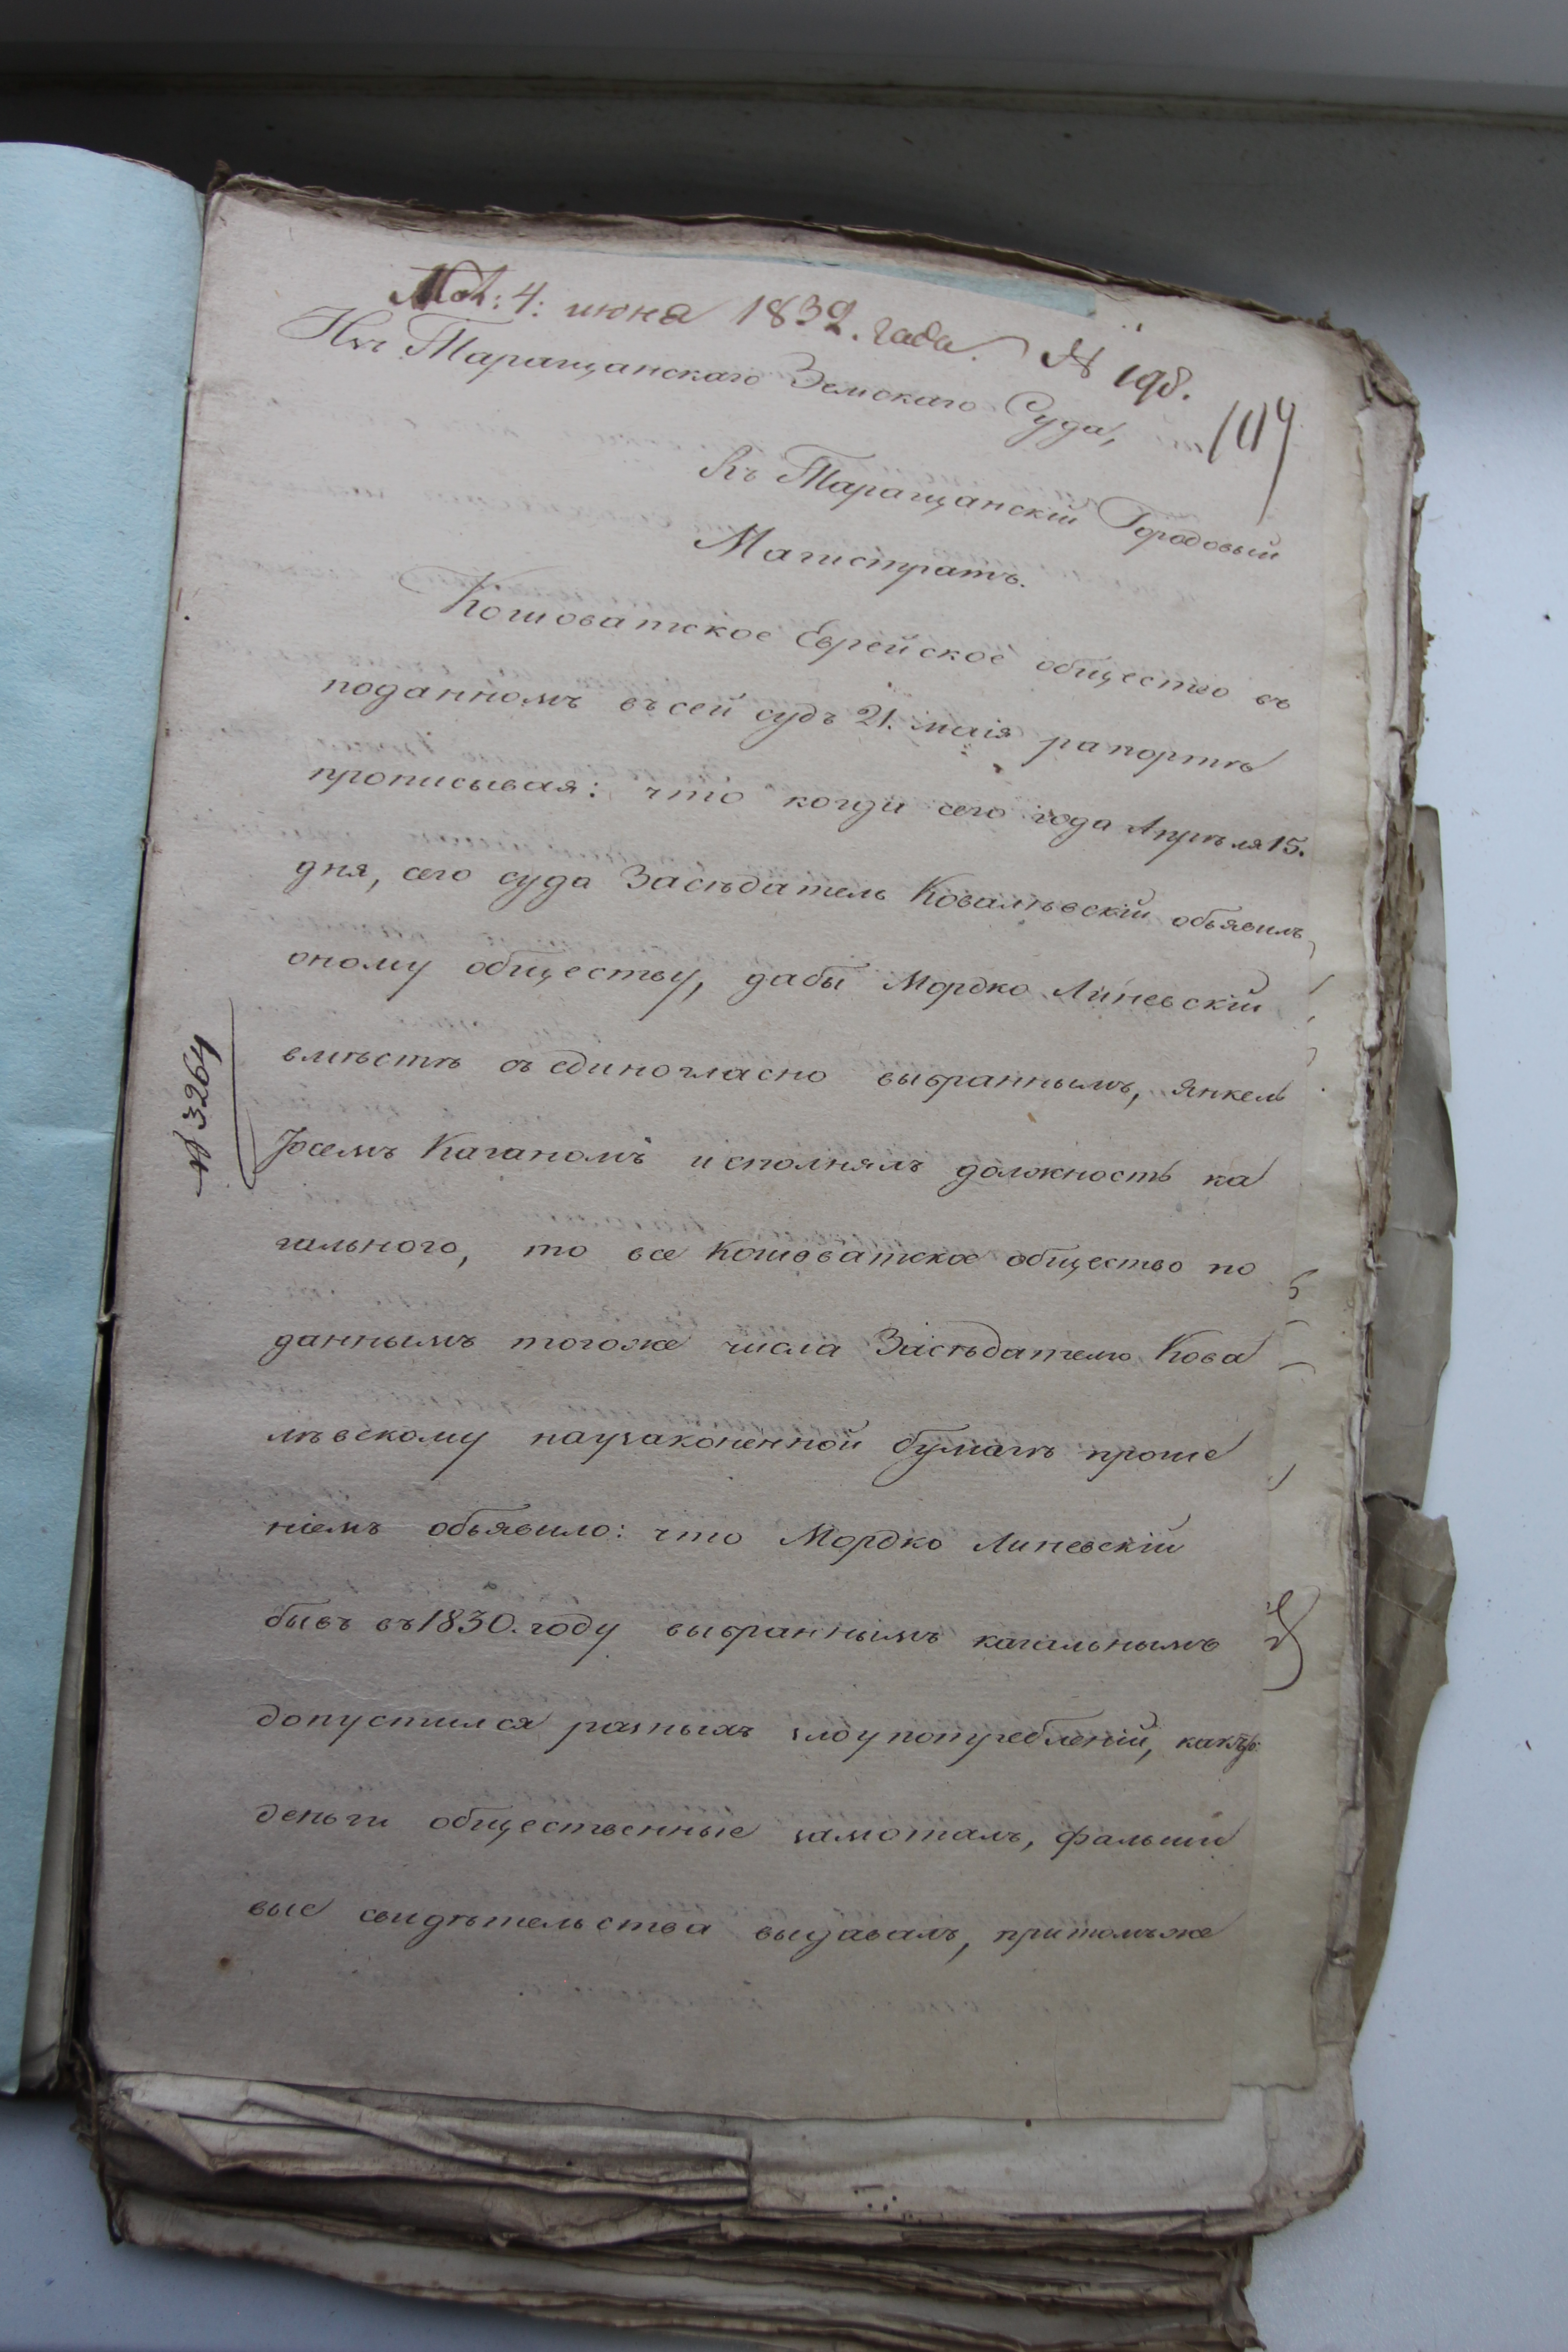 4: июня 1832. года. № 198.
Изъ Таращанскаго Земскаго Суда,
Въ Таращанскій Городовый
Магистратъ.
Кошоватское Еврейское общество въ
поданномъ въ сей судъ 21. маія рапортѣ
прописывая: что когда сего года Апрѣля 15.
дня, сего суда Засѣдатель Ковалѣвскій объявилъ
оному обществу, дабы Мордко Линевскій
вмѣстѣ съ единогласно выбраннымъ, Янкел
Іосемъ Каганомъ исполнялъ должность ка
гального, то все Кошоватское общество по
даннымъ тогоже числа Засѣдателю Кова
лѣвскому наузаконенной бумагѣ проше
ніемъ объявило: что Мордко Линевскій
бывъ въ 1830. году выбраннымъ кагальнымъ
допустился разныхъ злоупотребленій, какъ
деньги общественные замоталъ, фальши
вые свидѣтельства выдавалъ, притомъже
№ 3264